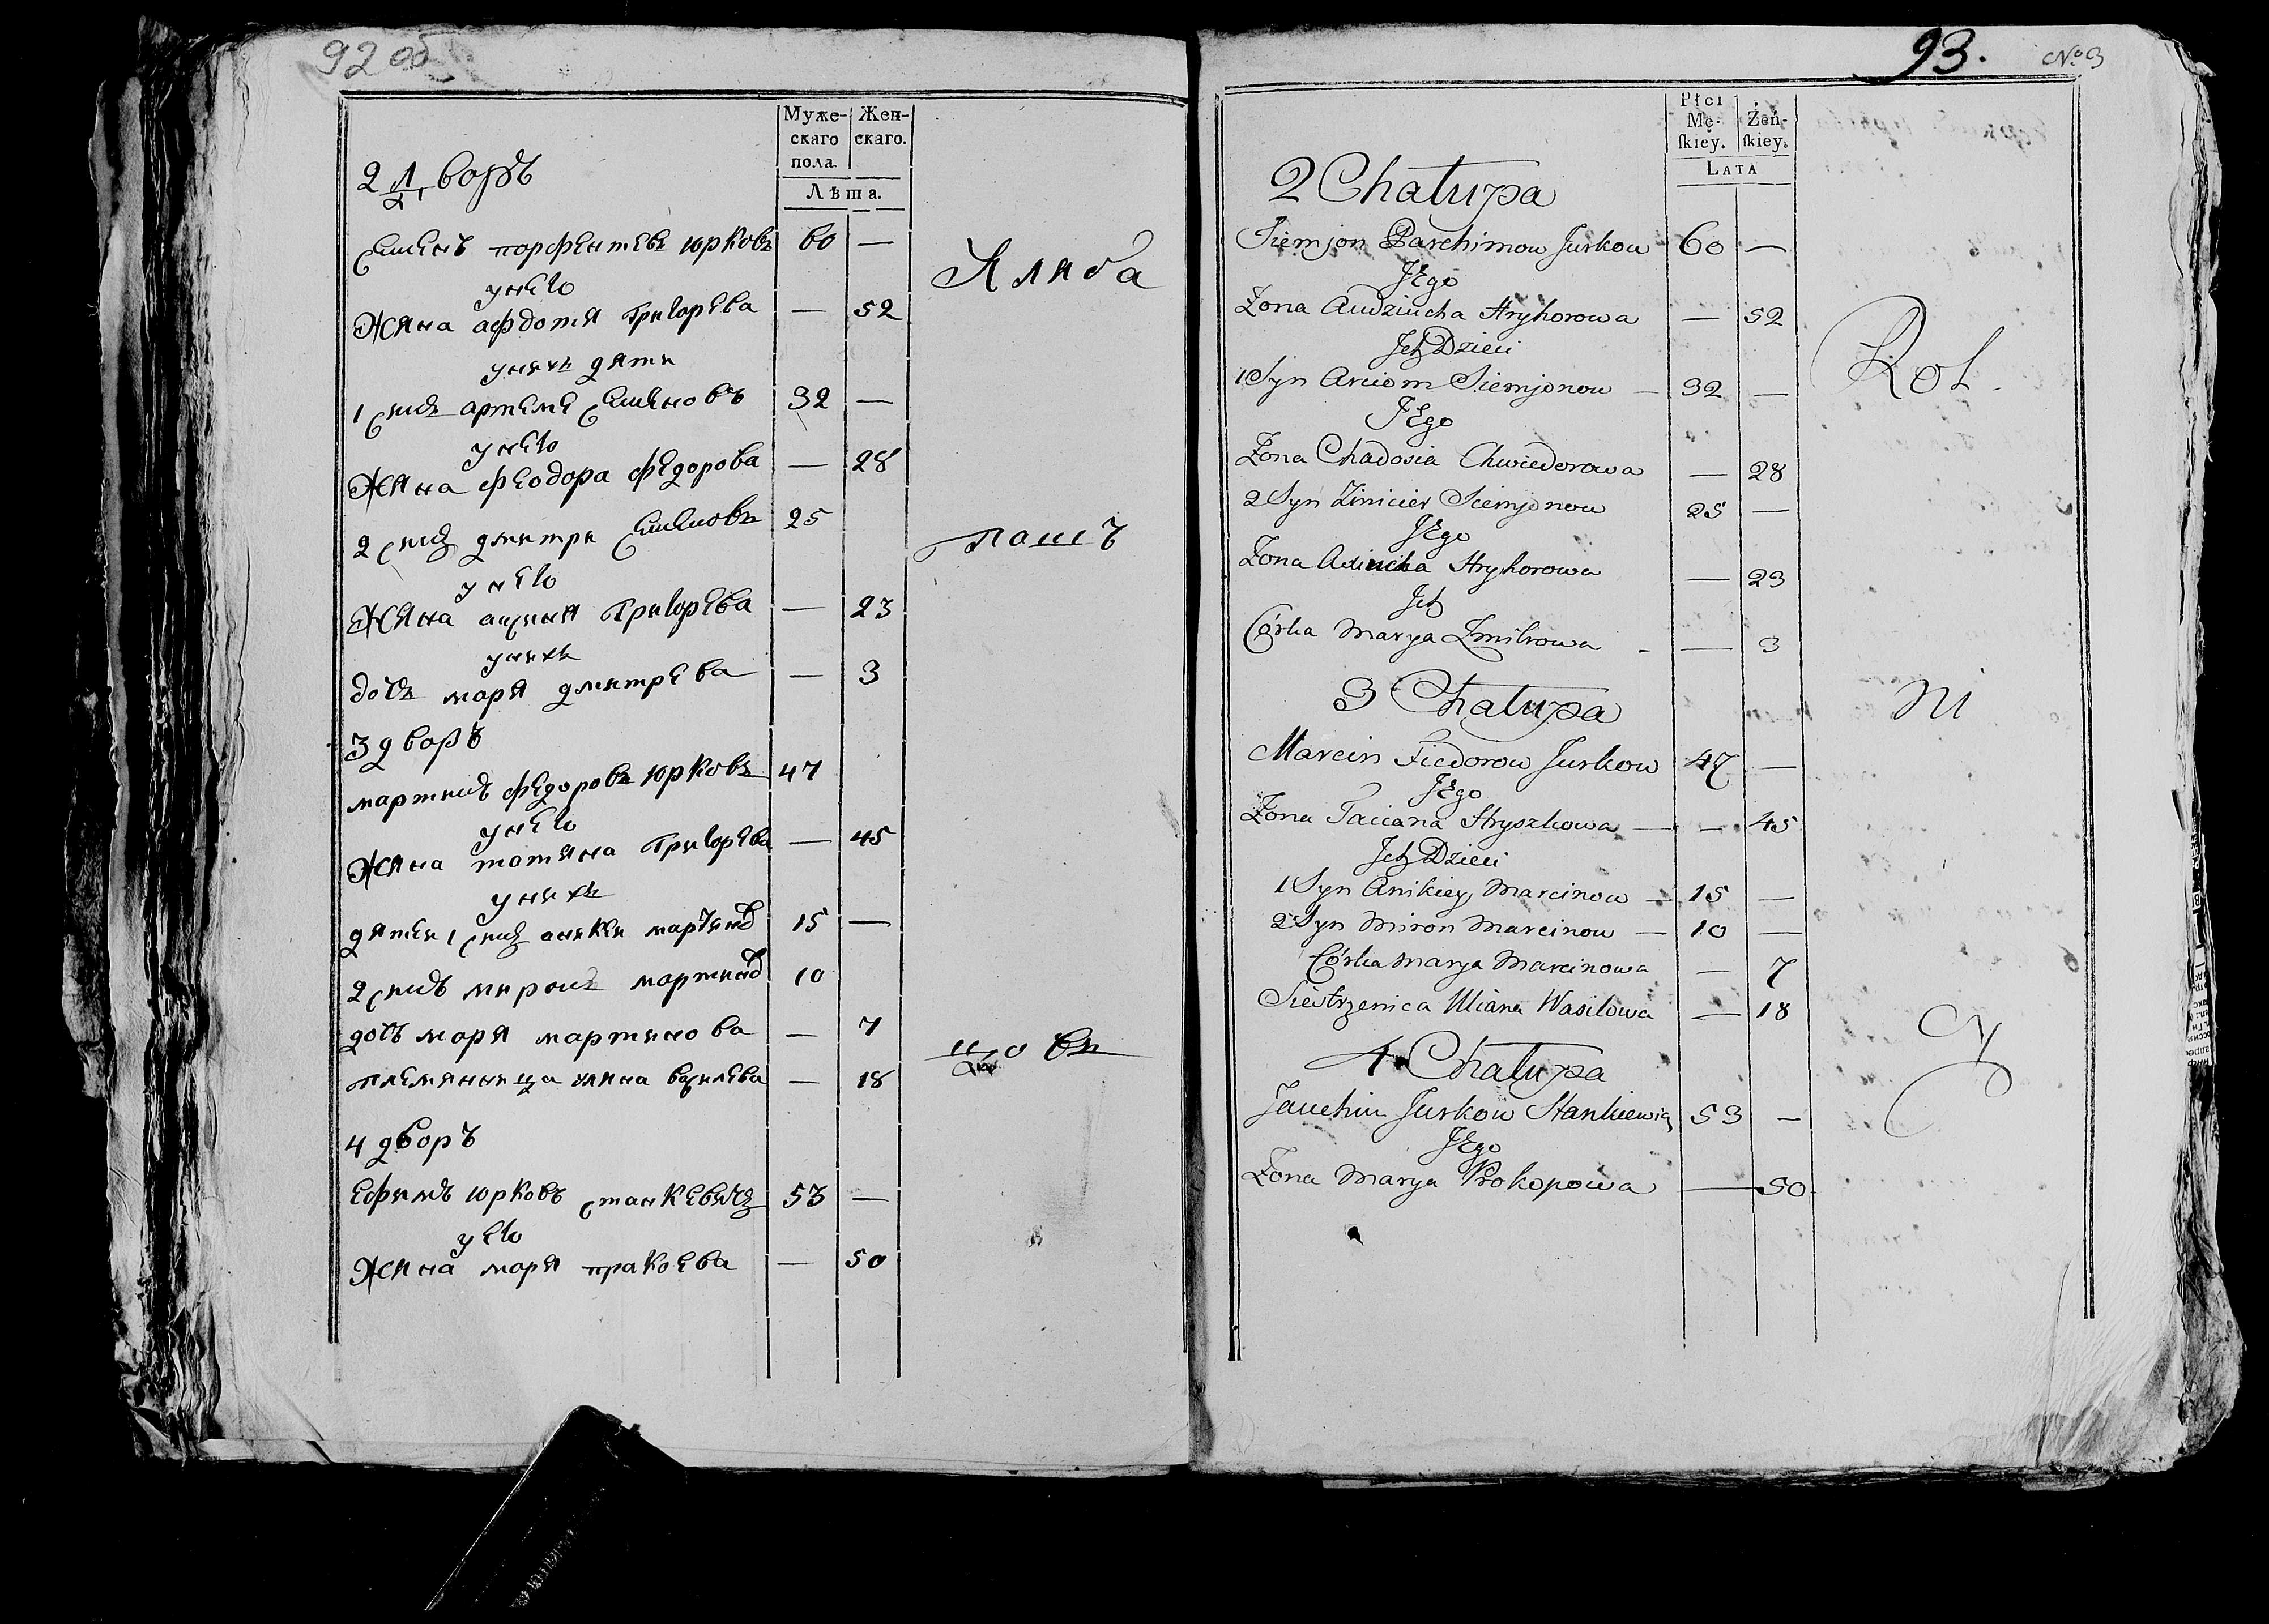 92 об
Муже-
скаго
пола.
Жен-
скаго.
Лѣта.
2 дворъ
семенъ порфентевъ юрковъ 60 —
унего
жяна афдотя григорева — 52
унихъ дяти
1 синъ артеме семеновъ 32 —
унего
жяна феодора федорова — 28
2 синъ дмитри семеновъ 25
унего
жяна аксиня григорева — 23
унихъ
дочъ маря дмитрева — 3
3 дворъ
мартинъ федоровъ юрковъ 47
унего
жяна татяна григорева — 45
унихъ
дятеи 1 синъ аникеи мартиновъ 15 —
2 синъ миронъ мартиновъ 10
дочъ маря мартинова — 7
племяница уляна василева — 18
4 дворъ
ефимъ юрковъ станкевичъ 53 —
уего
жяна маря пракоева — 50
Хляба
пашъ
93.
№ 3
Płci
Mę-
ſkiey.
Żeń-
ſkiey.
Lata
2 Chałupa
Siemjon Parchimow Jurkow 60 —
JEgo
Żona Audziucha Hryhorowa — 52
Jch Dzieci
1 Syn Arciom Siemjonow — 32 —
JEgo
Żona Chadosia Chwiedorowa — 28
2 Syn Zmicier Siemjonow 25 —
JEgo
Żona Axiucha Hryhorowa — 23
Jch
Córka Marya Zmitrowa — 3
3 Chałupa
Marcin Fiedorow Jurkow 47 —
JEgo
Żona Taciana Hryszkowa — 45
Jch Dzieci
1 Syn Anikiey Marcinow — 15 —
2 Syn Miron Marcinow — 10 —
Córka Marya Marcinowa — 7
Siestrzenica Uliana Wasilowa — 18
4 Chałupa
Jauchim Jurkow Stankiewicz 53 —
JEgo
Żona Marya Prokopowa — 50
Rol
ni
cy